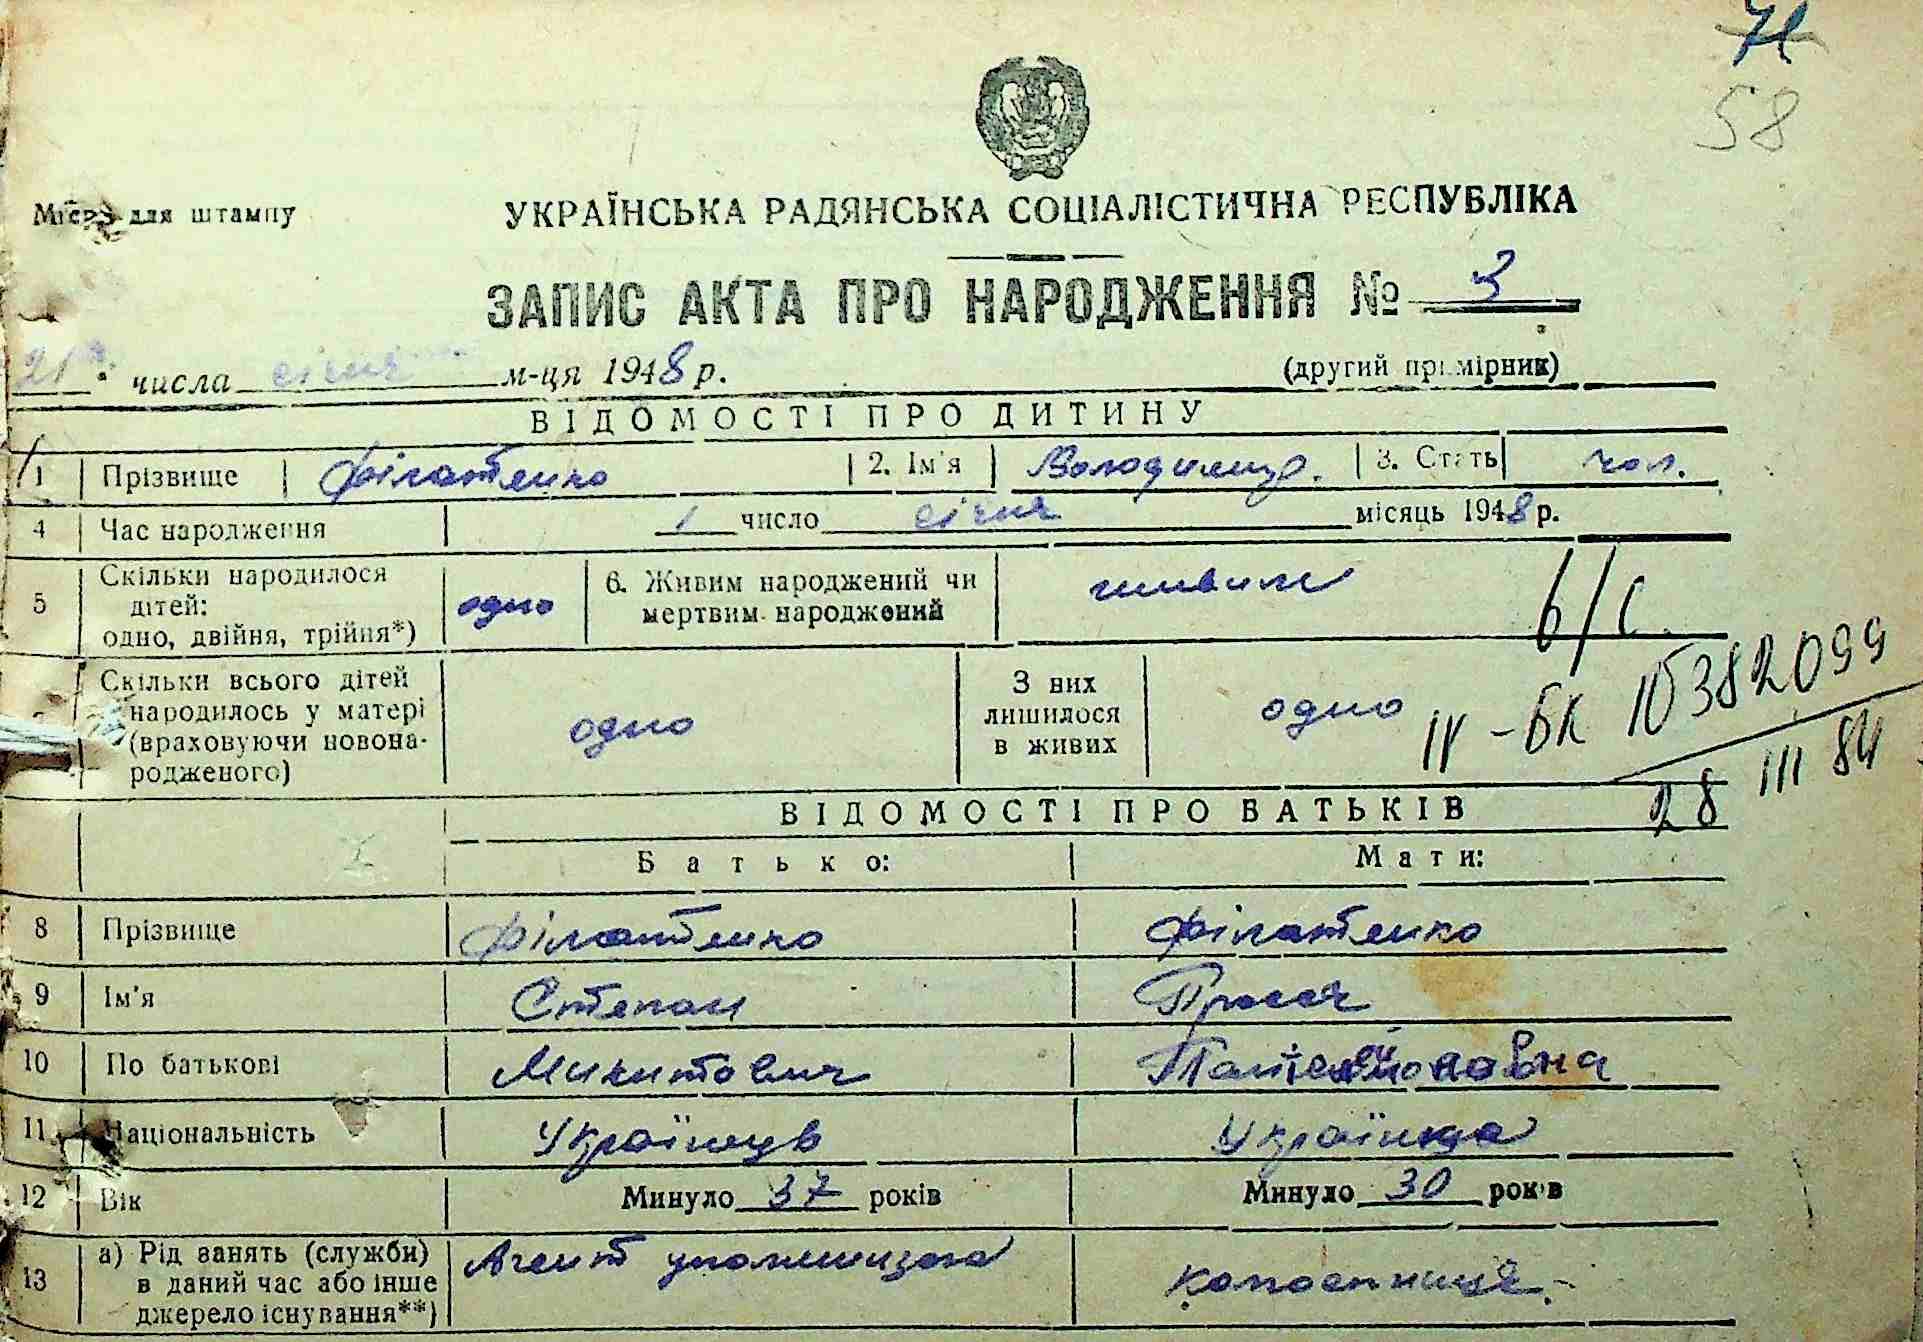 71
58
Місце для штампу
УКРАЇНСЬКА РАДЯНСЬКА СОЦІАЛІСТИЧНА РЕСПУБЛІКА
ЗАПИС АКТА ПРО НАРОДЖЕННЯ № 3
21 числа січня м-ця 1948 р. (другий примірник)
ВІДОМОСТІ ПРО ДИТИНУ
1 Прізвище Філатенко 2. Ім'я Володимир. 3. Стать чол.
4 Час народження 1 число січня місяць 1948 р.
5 Скільки народилося дітей: одно, двійня, трійня*) одно 6. Живим народжений чи мертвим народжений живим
б/с
Скільки всього дітей народилось у матері (враховуючи новонародженого) одно З них лишилося в живих одно
IV-БК 10382099
28 III 84
ВІДОМОСТІ ПРО БАТЬКІВ
Батько: Мати:
8 Прізвище Філатенко Філатенко
9 Ім'я Степан Прися
10 По батькові Микитович
11 Національність Українець Українка
12 Вік Минуло 37 років Минуло 30 років
13 а) Рід занять (служби) в даний час або інше джерело існування**) Агент колгоспниця.